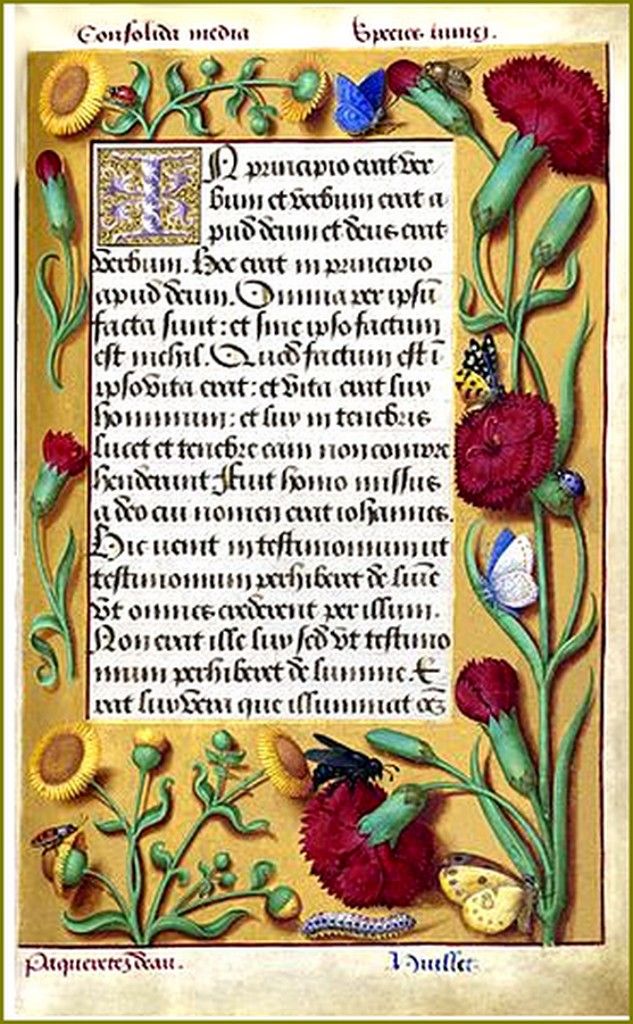 Consolida media
Species tunici.
IN principio erat ver-
bum et verbum erat a
pud deum et deus erat
verbum. Hoc erat in principio
apud deum. Omnia per ipsū
facta sunt: et sine ipso factum
est nichil. Quod factum est ī
ipso vita erat: et vita erat lux
hominum: et lux in tenebris
lucet et tenebre eam non compre
henderunt Fuit homo missus
a deo cui nomen erat iohannes.
Hic venit in testimonium ut
testimonium perhiberet de lumīe
Vt omnes crederent per illum.
Non erat ille lux sed vt testimo
nium perhiberet de lumine. E
rat lux vera que illuminat oēz
Paqueretez deau.
Huillet.